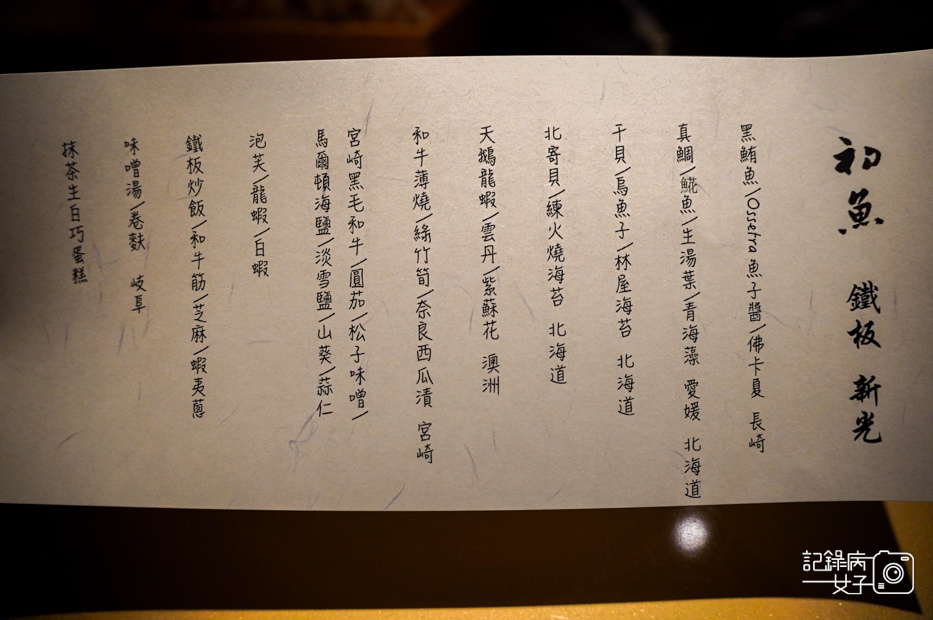 初魚 鐵板 新光
黑鮪魚/Ossetra魚子醬/佛卡夏 長崎
真鯛/鯷魚/生湯葉/青海藻 愛媛 北海道
干貝/烏魚子/林屋海苔 北海道
北寄貝/練火燒海苔 北海道
天鵝龍蝦/雲丹/紫蘇花 澳洲
和牛薄燒/綠竹筍/奈良西瓜漬 宮崎
宮崎黑毛和牛/圓茄/松子味噌/
馬爾頓海鹽/淡雪鹽/山葵/蒜仁
泡芙/龍蝦/白蝦
鐵板炒飯/和牛筋/芝麻/蝦夷蔥
味噌湯/卷麩 岐阜
抹茶生白巧蛋糕
記錄病
女子